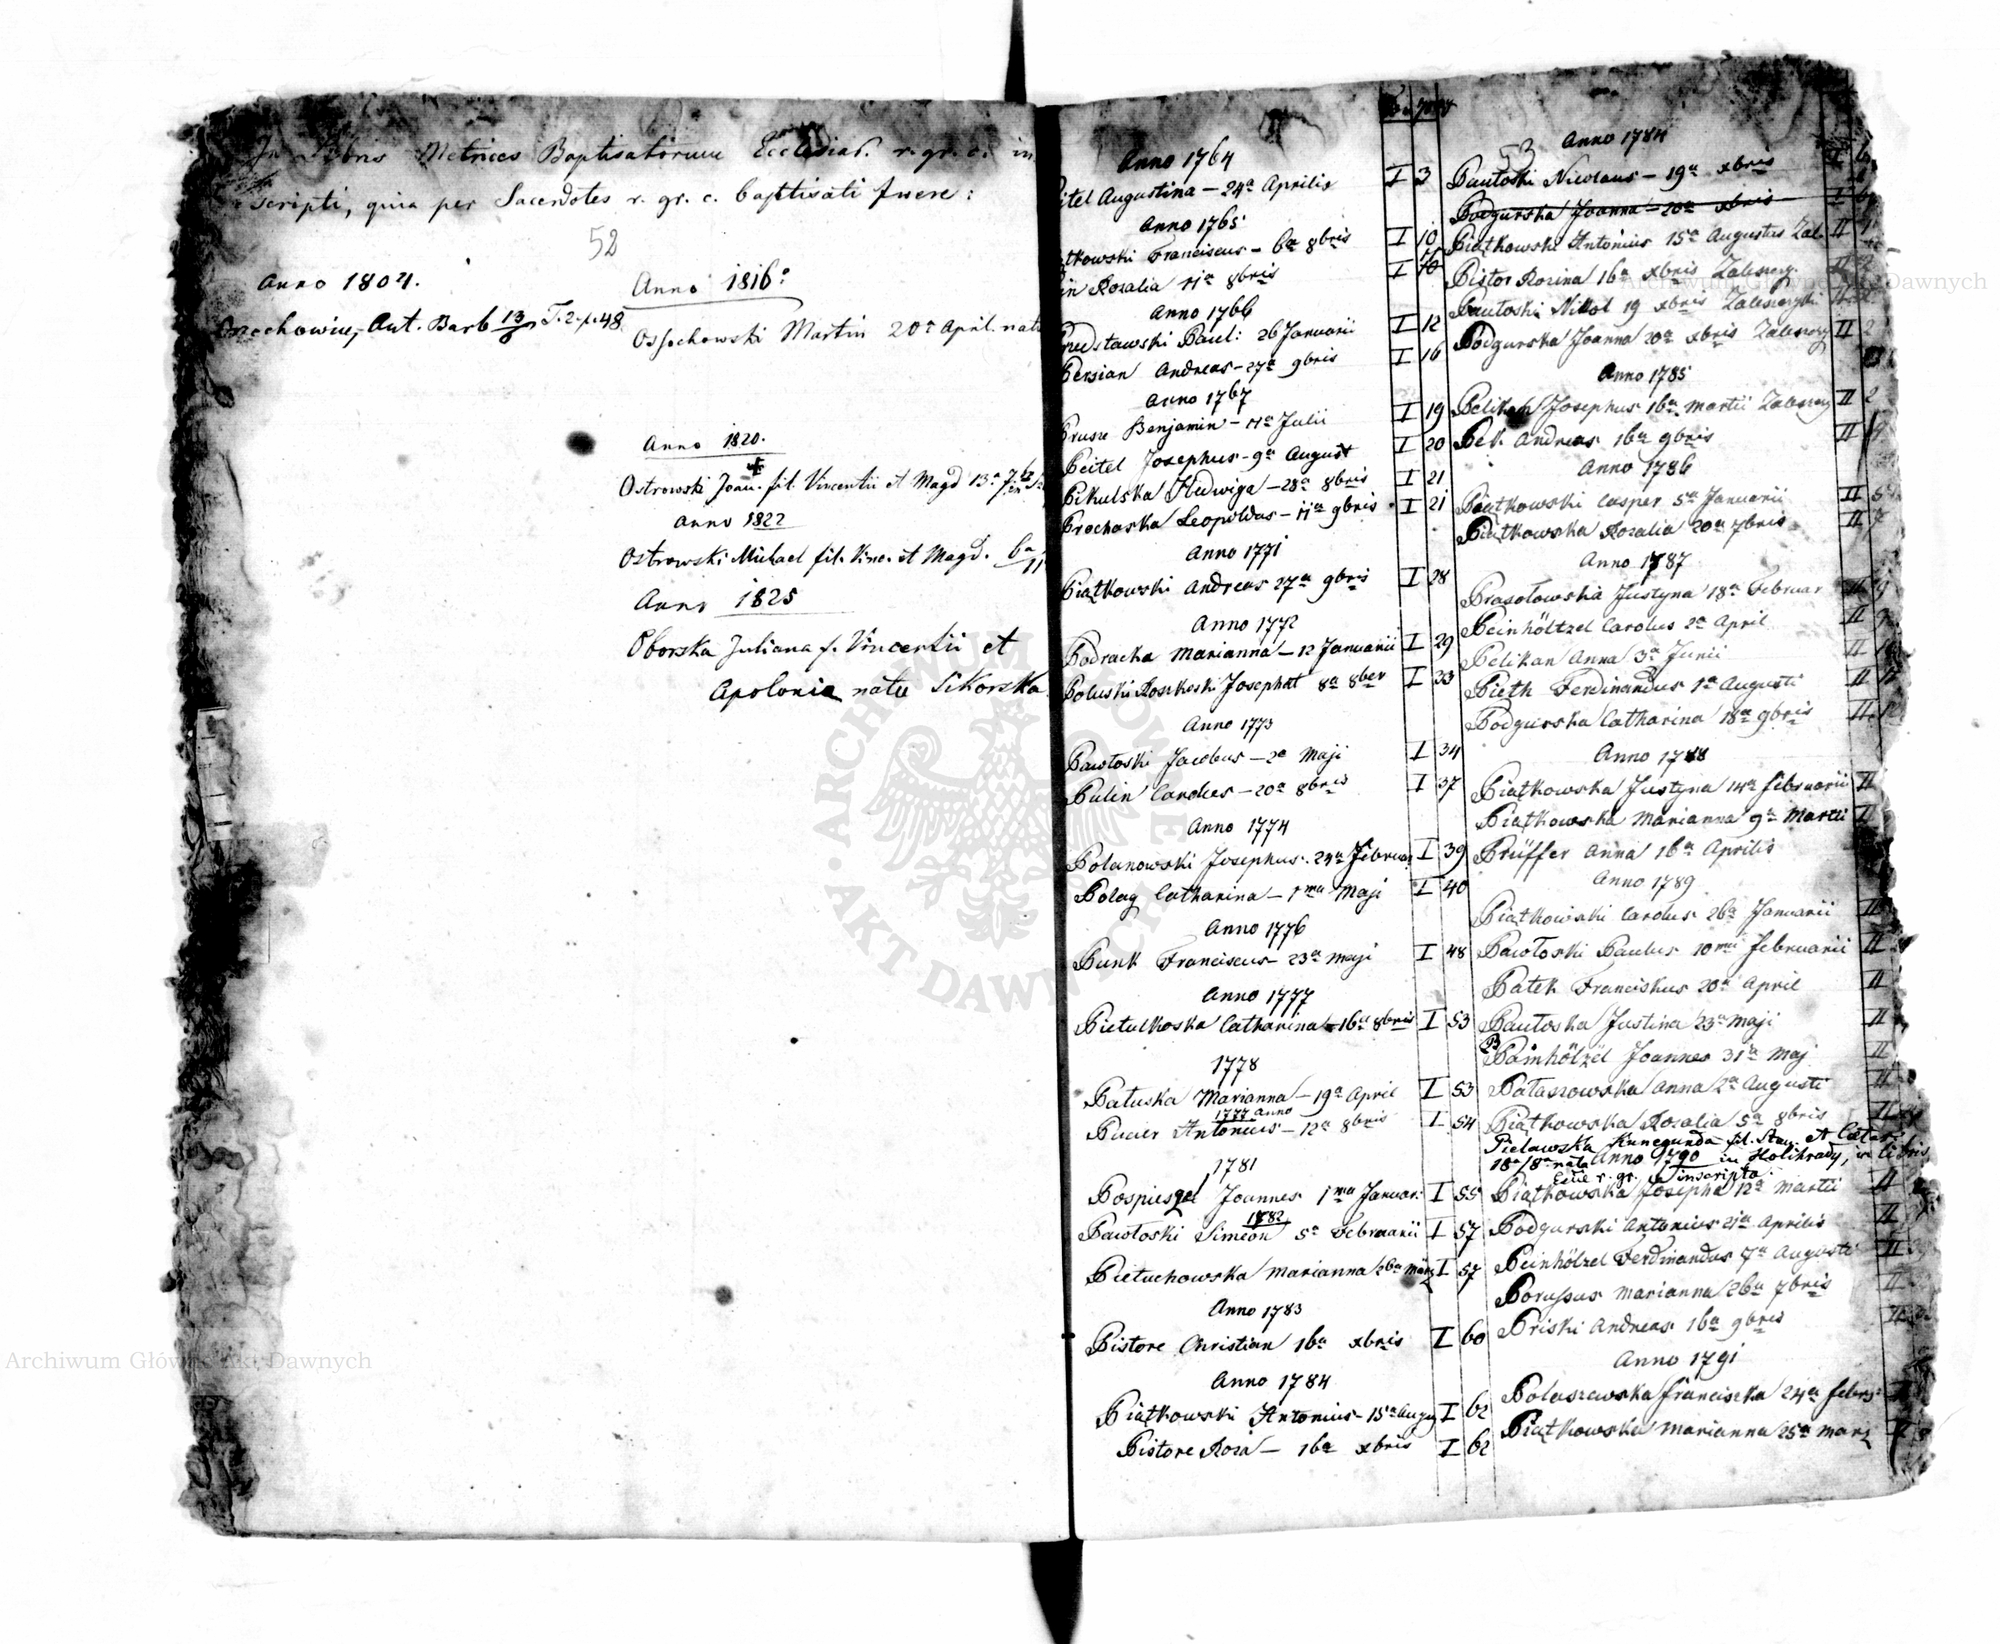 In Libris Metrices Baptisatorum Ecclesias. r. gr. c. in
scripti, quia per Sacerdotes r. gr. c. baptisati fuere:
52
Anno 1804.
Ant. Barb 13 T. 2. p. 48
Anno 1816:
Martin 20a April. natu
Anno 1820.
Ostrowski Joan. fil. Vincentii et Magd 13a
Anno 1822
Ostrowski Michael fil. Vinc. et Magd. 6a/11
Anno 1825
Oborska Juliana f. Vincentii et
Apolonia nata Sikorska
Anno 1764
itel Augustina — 24a Aprilis I 3
Anno 1765
tkowski Franciscus — 6a 8bris I 10
in Rosalia 11a 8bris I 10
Anno 1766
Paul: 26 Januarii I 12
Persian Andreas — 27a 9bris I 16
Anno 1767
Benjamin — 11a Julii I 19
Peitel Josephus — 9a August I 20
Pikulska Hedwiga — 28a 8bris I 21
Prochaska Leopoldus — 11a 9bris I 21
Anno 1771
Piątkowski Andreas 27a 9bris I 28
Anno 1772
Podracka Marianna — 12 Januarii I 29
Josephat 8a 8ber I 33
Anno 1773
Pawłoski Jacobus — 2a Maji I 34
Pulin Carolus — 20a 8bris I 37
Anno 1774
Polanowski Josephus. 24a Februar I 39
Polag Catharina — 1ma Maji I 40
Anno 1776
Punk Franciscus — 23a Maji I 48
Anno 1777
Pietulkoska Catharina — 16a 8bris I 53
1778
Patuska Marianna — 19a April I 53
1777 Anno
Antonius — 12a 8bris I 54
1781
Joannes 1ma Januar: I 55
1782
Pawłoski Simeon 5a Februarii I 57
Pietuchowska Marianna 26a Marz I 57
Anno 1783
Pistore Christian 16a xbris I 60
Anno 1784
Piątkowski Antonius — 15a Augu I 62
Pistore Roza — 16a xbris I 62
53
Anno 1784
Pawłoski Nicolaus — 19a xbris I
Podgurska Joanna — 20a xbris I
Piątkowski Antonius 15a Augustus Zal. II 1
Pistor Rozina 16a xbris Zaleszcz. II 2
Pawłoski Nikol 19 xbris Zaleszczyki
Podgurska Joanna 20a xbris Zaleszczy II 2
Anno 1785
Pelikah Josephus 16a Martii Zaleszczy II 2
Pek Andreas 16a 9bris II
Anno 1786
Piątkowski Casper 5a Januarii II 5
Piątkowska Rozalia 20a 7bris II 7
Anno 1787
Justyna 18a Februar II 9
Peinhöltzel Carolus 2a April II 9
Pelikan Anna 3a Junii II
Pieth Ferdinandus 1a Augusti II
Podgurska Catharina 18a 9bris II
Anno 1788
Piątkowska Justyna 14a Februarii II
Piątkowska Marianna 9a Martii II
Prüffer Anna 16a Aprilis
Anno 1789
Piątkowski Carolus 26a Januarii II
Pawłoski Paulus 10ma februarii II
Patek Franciskus 20a April II
Pawłoska Justina 23a Maji II
Painhölzel Joannes 31a Maj II
Pataszowska Anna 2a Augusti II
Piątkowska Rozalia 5a 8bris II
Pielawska Kunegunda fil. Stan. et Catar.
18a/8a nata Anno 1790 in Holihrady, in libris
Eccle r. gr. c. inscripta.
Piątkowska Josepha 12a Martii II
Podgurski Antonius 21a Aprilis II
Peinhölzel Ferdinandus 7a Augusti II
Porussus Marianna 26a 7bris II
Priski Andreas 16a 9bris
Anno 1791
Potaszewska Franciszka 24a febrs
Piątkowska Marianna 25a Marz
Archiwum Główne Akt Dawnych
Archiwum Główne Akt Dawnych
ARCHIWUM GŁÓWNE AKT DAWNYCH